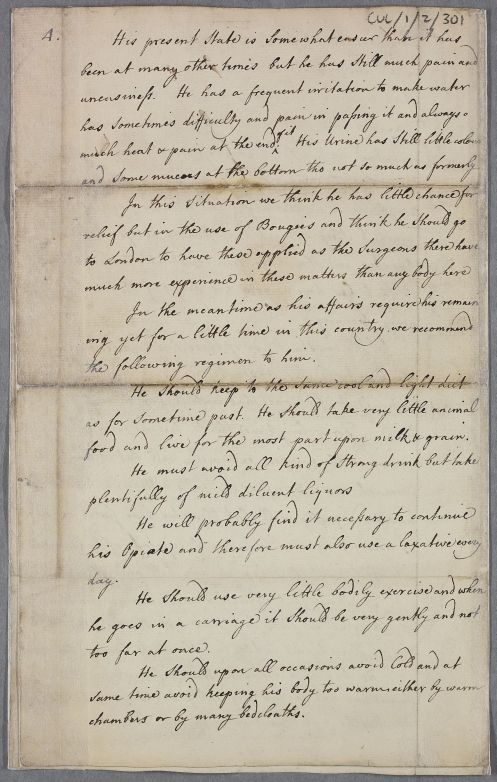 CUL/1/2/301
A.
His present State is Somewhat easier than it has
been at many other times but he has Still much pain and
uneasiness. He has a frequent irritation to make water
has Sometimes difficulty and pain in passing it and always
much heat & pain at the end of it. His Urine has Still little colour
and Some mucus at the bottom tho not so much as formerly
In this Situation we think he has little chance for
relief but in the use of Bougies and think he Should go
to London to have these applied as the Surgeons there have
much more experience in these matters than any body here
In the meantime as his affairs require his remain
ing yet for a little time in this country we recommend
the following regimen to him.
He Should keep to the Same cool and light diet
as for Sometime past. He Should take very little animal
food and live for the most part upon milk & grain.
He must avoid all kind of Strong drink but take
plentifully of mild diluent liquors
He will probably find it necessary to continue
his Opiate and therefore must also use a laxative every
day.
He Should use very little bodily exercise and when
he goes in a carriage it Should be very gently and not
too far at once.
He Should upon all occasions avoid Cold and at
Same time avoid keeping his body too warm either by warm
chambers or by many bedcloaths.